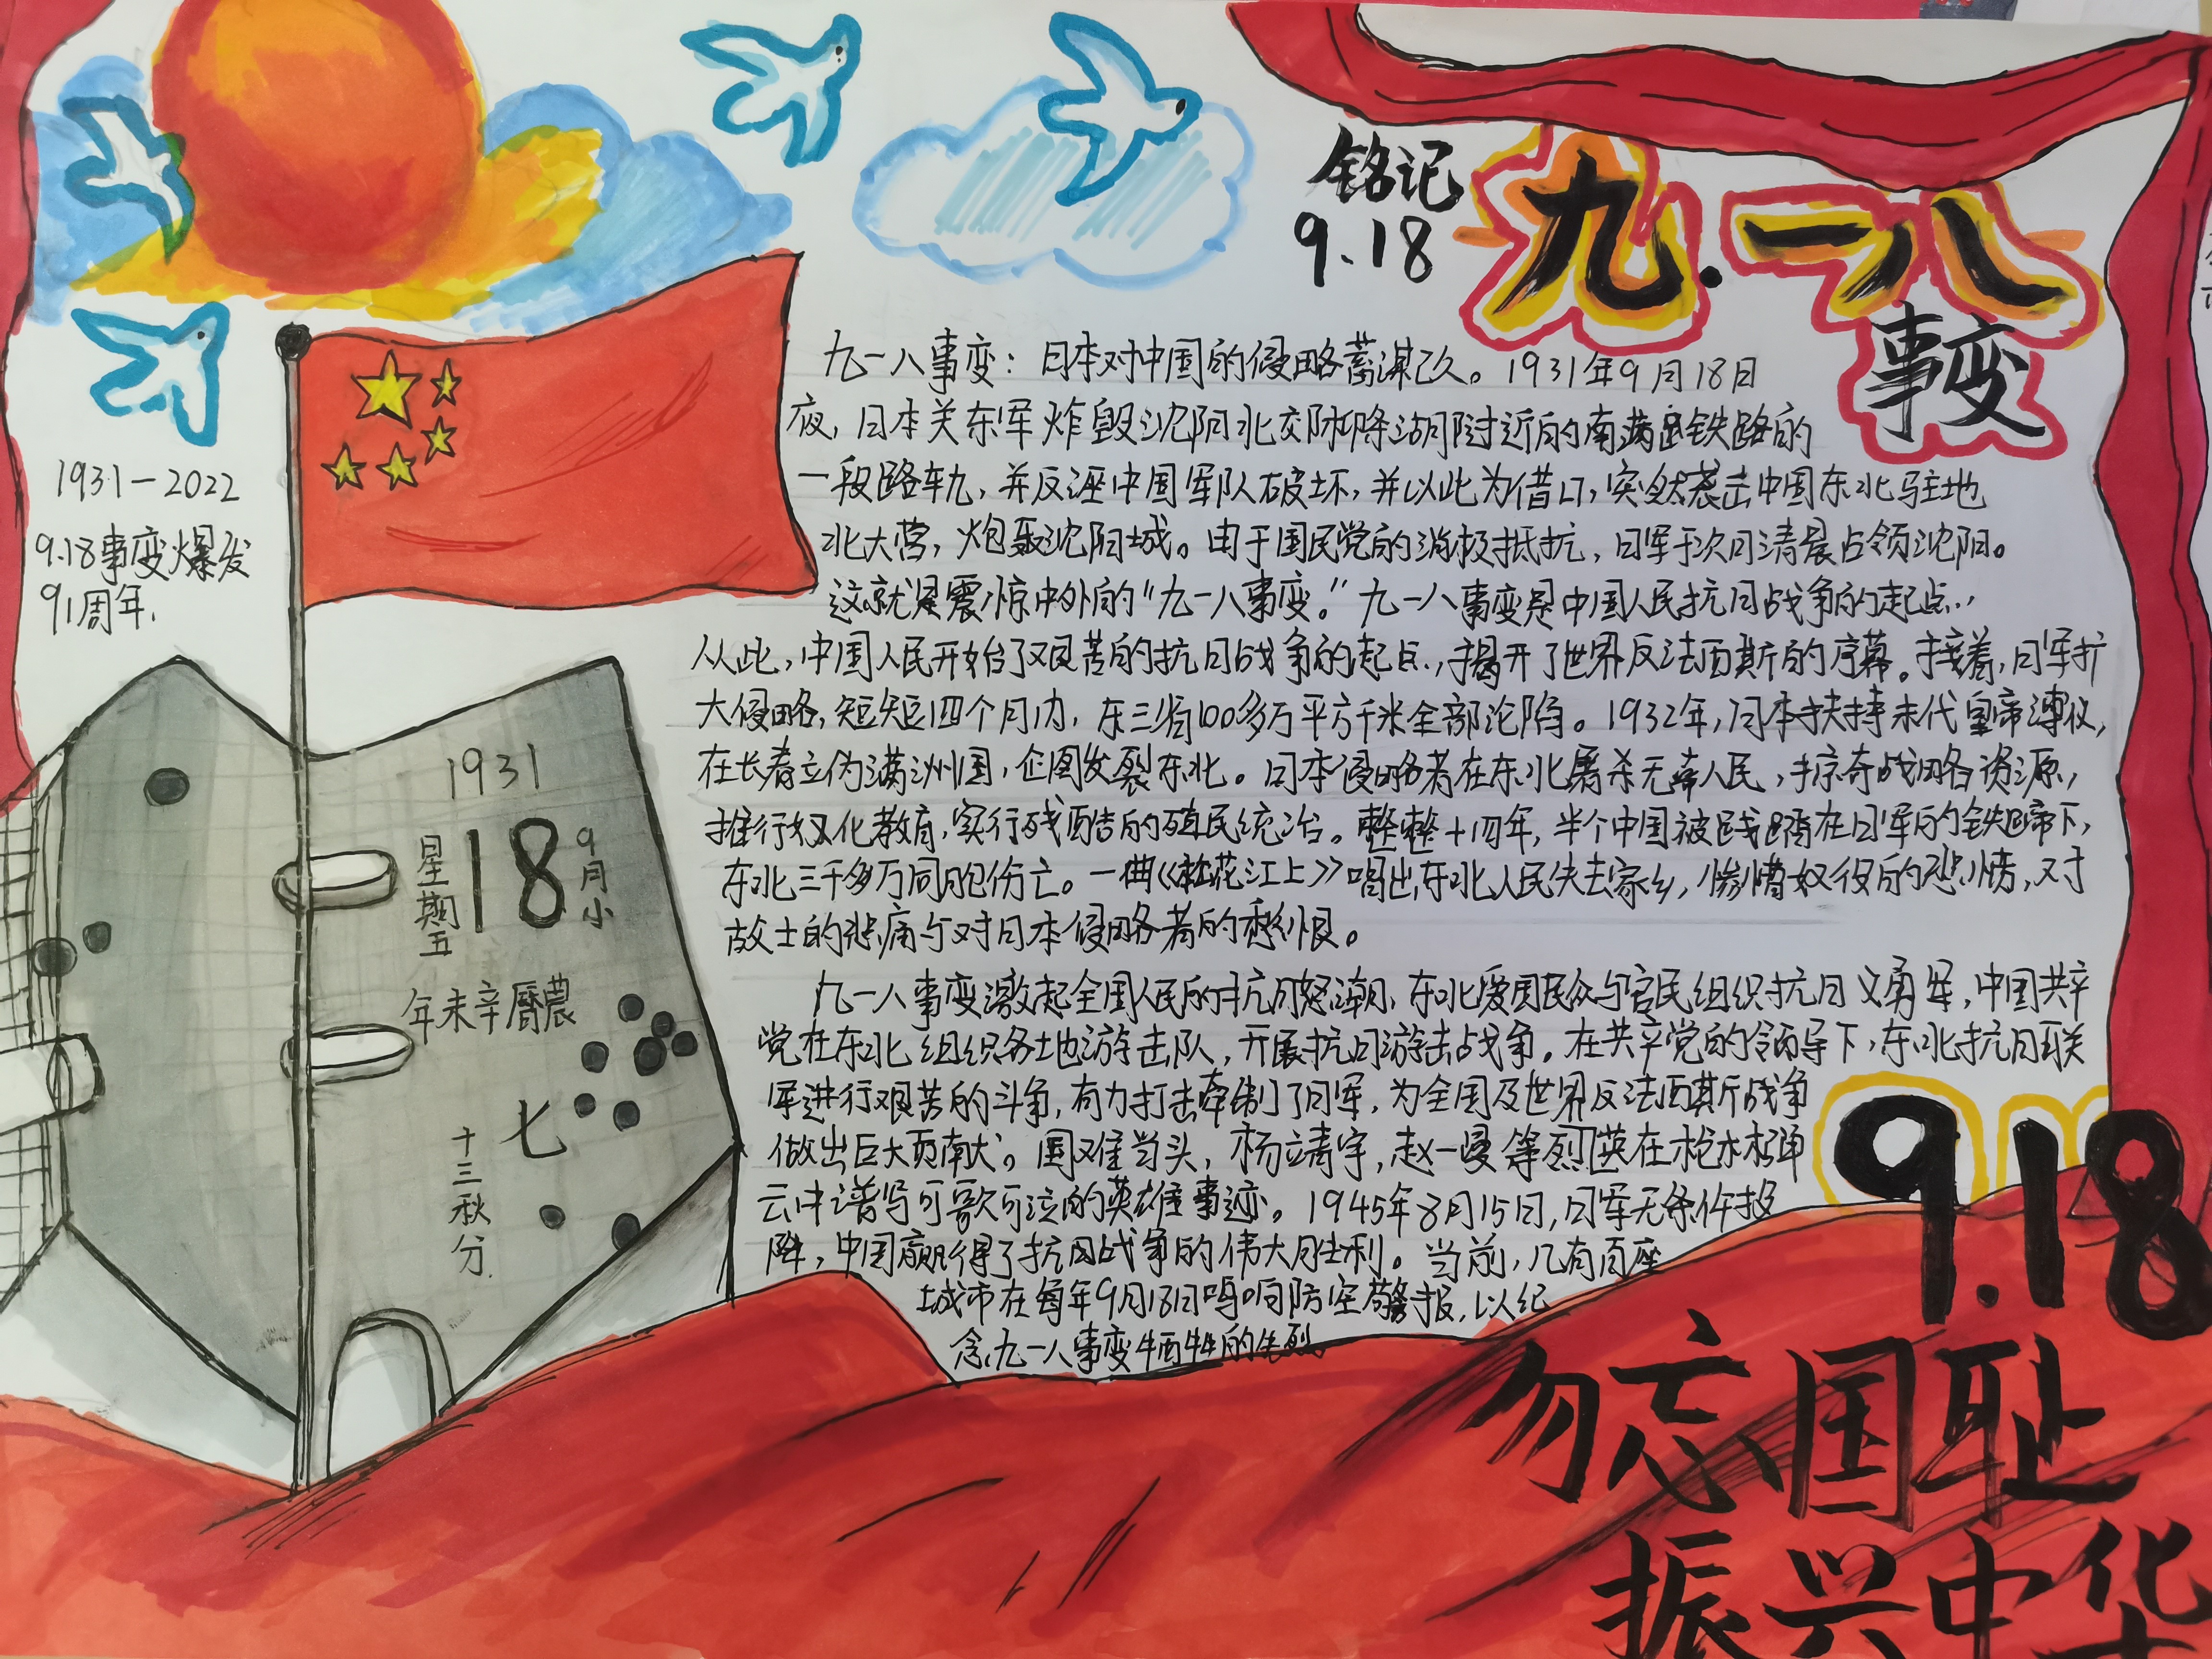 铭记
9.18
九·一八
事变
1931-2022
9.18事变爆发
91周年.
九一八事变：日本对中国的侵略蓄谋已久。1931年9月18日
夜，日本关东军炸毁沈阳北郊柳条湖附近的南满铁路的
一段路轨，并反诬中国军队破坏，并以此为借口，突然袭击中国东北驻地
北大营，炮轰沈阳城。由于国民党的消极抵抗，日军于次日清晨占领沈阳。
这就是震惊中外的“九一八事变。”九一八事变是中国人民抗日战争的起点，
从此，中国人民开始了艰苦的抗日战争的起点，揭开了世界反法西斯的序幕。接着，日军扩
大侵略，短短四个月内，东三省100多万平方千米全部沦陷。1932年，日本扶持末代皇帝溥仪，
在长春立伪满洲国，企图分裂东北。日本侵略者在东北屠杀无辜人民，掠夺战略资源，
推行奴化教育，实行残酷的殖民统治。整整十四年，半个中国被践踏在日军的铁蹄下，
东北三千多万同胞伤亡。一曲《松花江上》唱出东北人民失去家乡，惨遭奴役的悲情，对
故土的悲痛与对日本侵略者的愁恨。
九一八事变激起全国人民的抗日怒潮，东北爱国民众与官民组织抗日义勇军，中国共产
党在东北组织各地游击队，开展抗日游击战争。在共产党的领导下，东北抗日联
军进行艰苦的斗争，有力打击牵制了日军，为全国及世界反法西斯战争
做出巨大贡献。国难当头，杨靖宇，赵一曼等烈英在枪林弹
云中谱写可歌可泣的英雄事迹。1945年8月15日，日军无条件投
降，中国赢得了抗日战争的伟大胜利。当前，几有百座
城市在每年9月18日鸣响防空警报，以纪
念九一八事变牺牲的先烈
1931
星期五
18
9月小
年未辛曆農
七
十三秋分
9.18
勿忘国耻
振兴中华